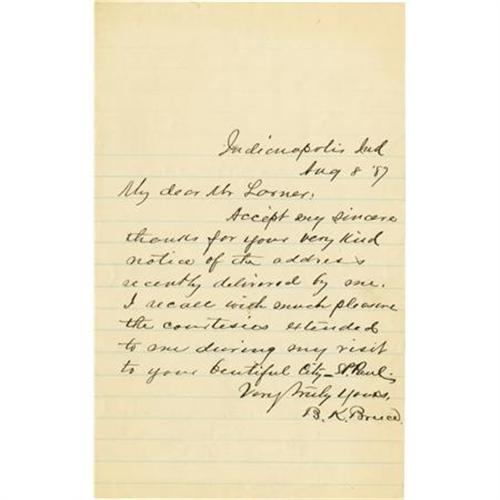 Indianapolis Ind
Aug 8 '87
My dear Mr Larner,
Accept my sincere
thanks for your very kind
notice of the address
recently delivered by me.
I recall with much pleasure
the courtesies extended
to me during my visit
to your beautiful City - St. Paul.
Very truly Yours,
B. K. Bruce.